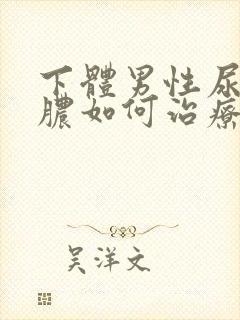 下體男性尿
膿如何治療
吴洋文